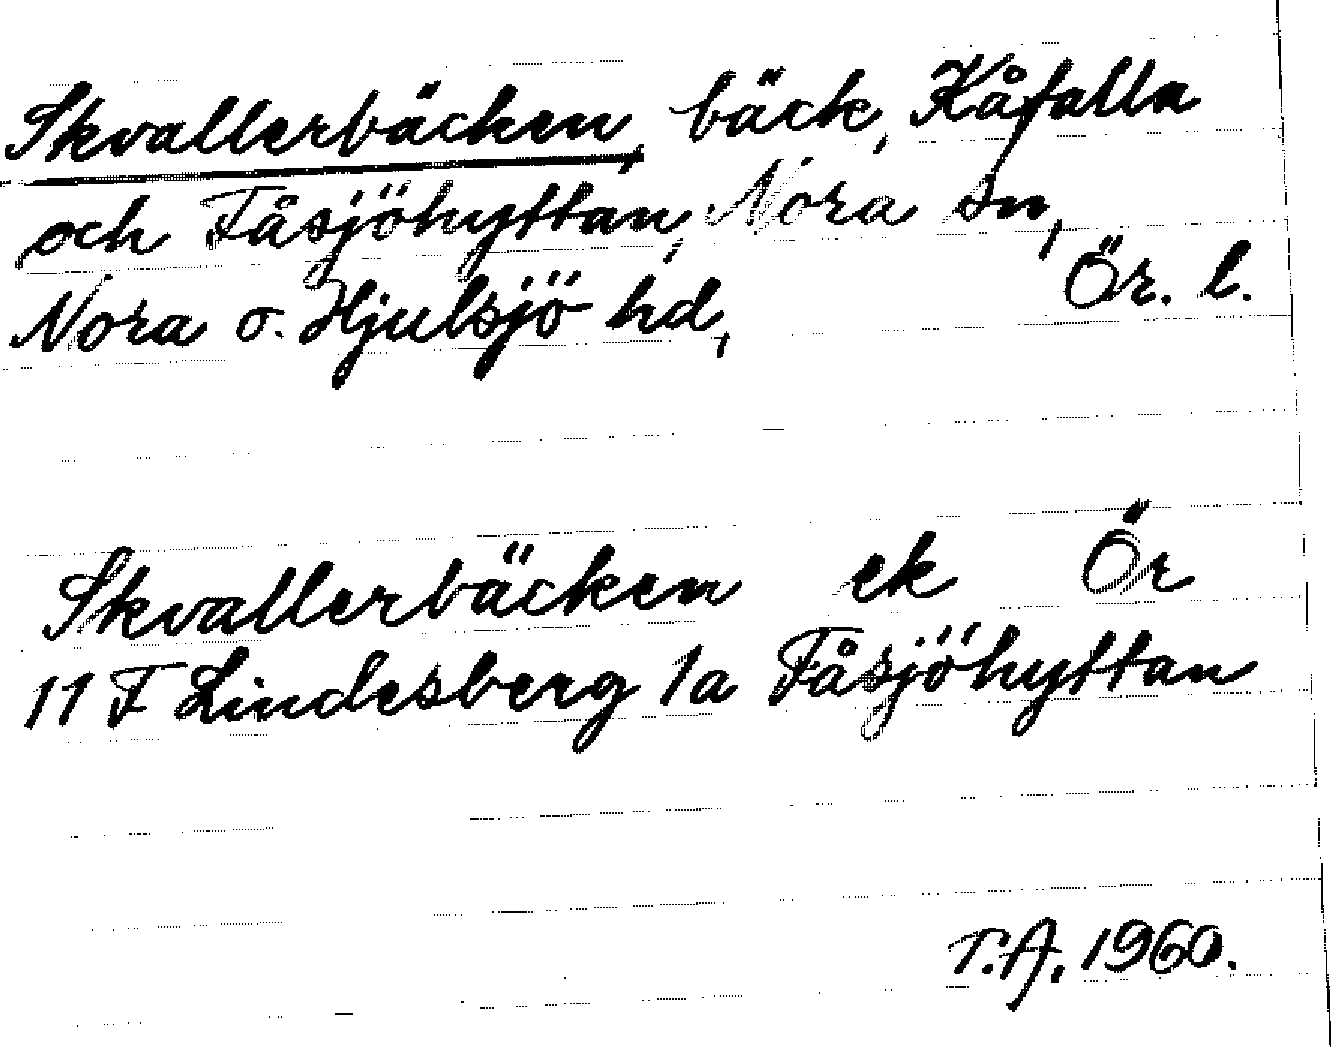 Skvallerbäcken, bäck, Kåfalla
och Fåsjöhyttan, Nora sn,
Nora o. Hjulsjö hd, Ör. l.
Skvallerbäcken ek Ör
11 F Lindesberg 1a Fåsjöhyttan
T.A. 1960.